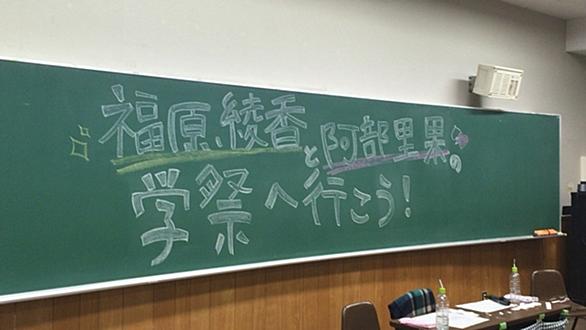 福原綾香と阿部里果の
学祭へ行こう!